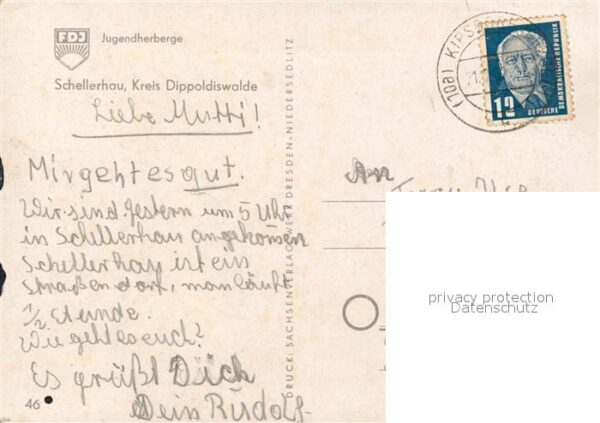 FDJ
Jugendherberge
Schellerhau, Kreis Dippoldiswalde
Liebe Mutti!
Mir geht es gut.
Wir sind gestern um 5 Uhr
in Schellerhau angekommen
Schellerhau ist ein
Straßendorf, man läuft
1/2 Stunde.
Wie geht es euch?
Es grüßt Dich
Dein Rudolf
46
DRUCK: SACHSENVERLAG, WERK DRESDEN-NIEDERSEDLITZ
(10a) KIPS
21.
12
DEUTSCHE
DEMOKRATISCHE REPUBLIK
An
privacy protection
Datenschutz